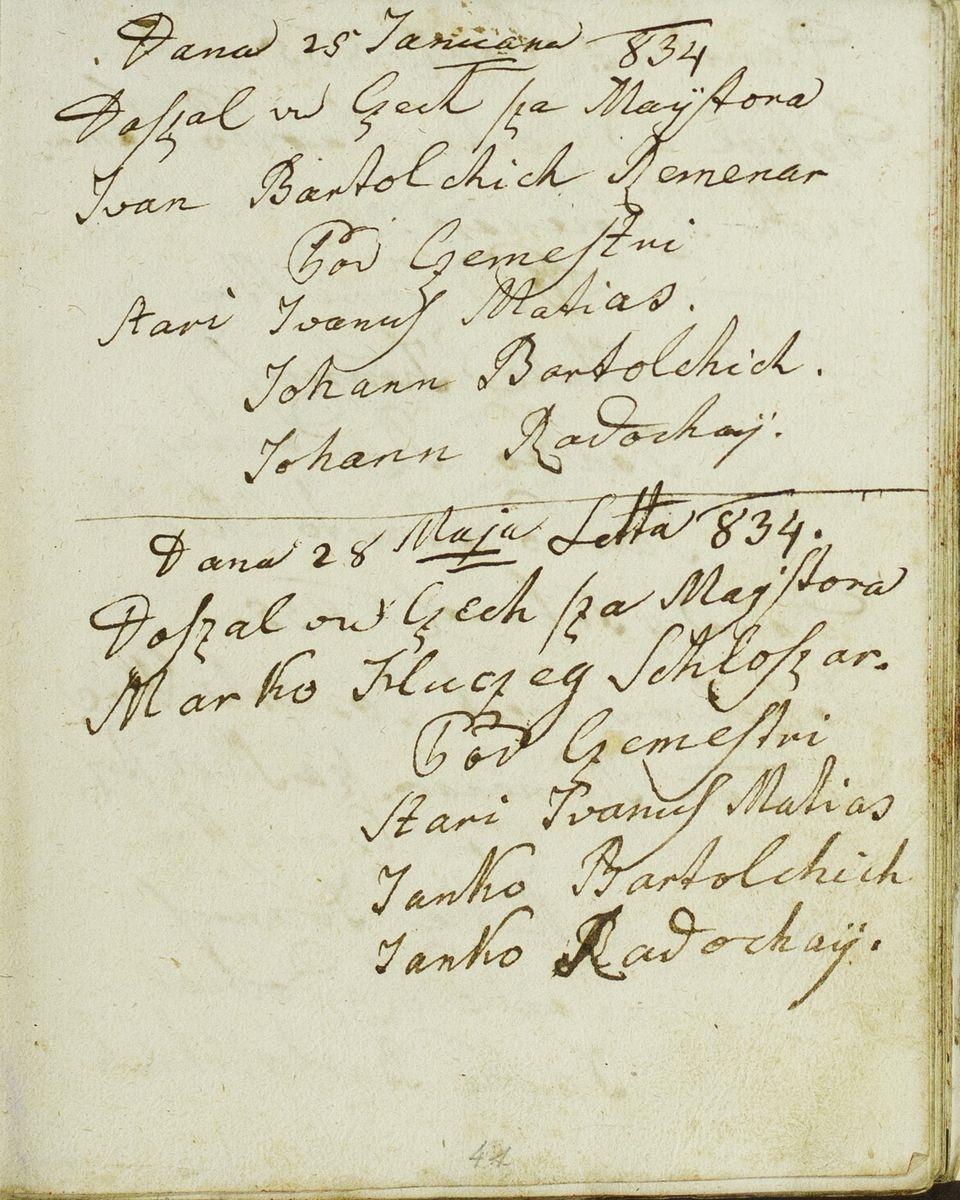 Dana 25 Januara 834
Doszal vu Czech sza Maÿstora
Ivan Bartolchich Remenar
Pod Czemestri
Stari Ivanus Matias.
Johann Bartolchich.
Johann Radochaÿ.
Dana 28 Maja Letta 834.
Doszal vu Czech sza Maÿstora
Marko Kluczeg Schloszar.
Pod Czemestri
Stari Ivanus Matias
Janko Bartolchich
Janko Radochaÿ.
44